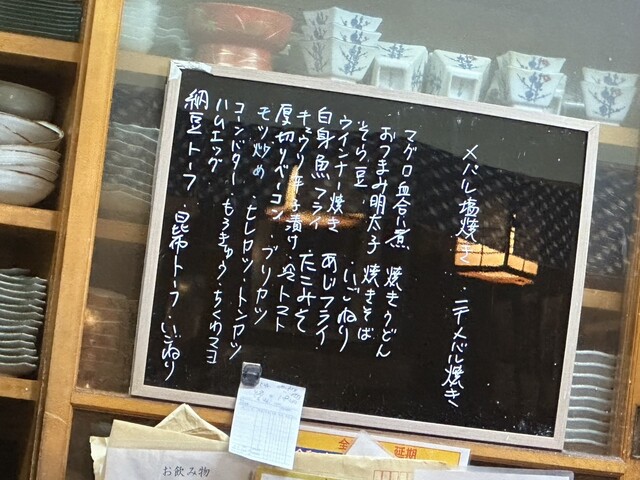 メバル塩焼き
ニテメバル焼き
マグロ血合い煮 焼きうどん
おつまみ明太子 焼きそば
そら豆 いごねり
ウインナー焼き あじフライ
白身魚フライ たこみそ
キュウリ辛子漬け 冷トマト
厚切りベーコン ブリカツ
モツ炒め ヒレカツ・トンカツ
コーンバター もろきゅう・ちくわマヨ
ハムエッグ
納豆トーフ・昆布トーフ・いごねり
全
延期
お飲み物